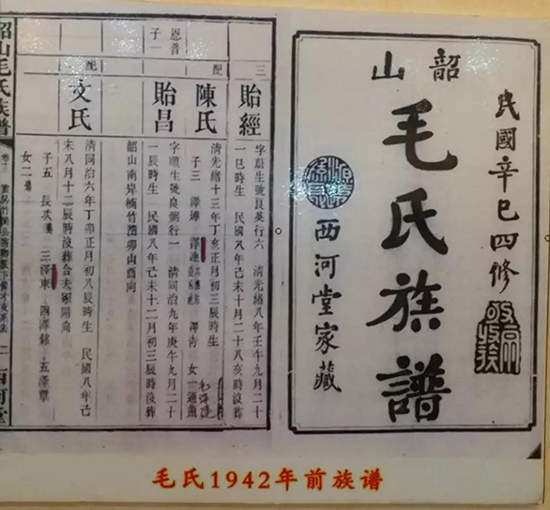 民國辛巳四修
韶山
毛氏族譜
西河堂家藏
三
貽經
字蔚生號良英行六 清光緒八年壬午九月二十
一巳時生 民國八年己未十二月二十八亥時沒葬
配
陳氏
清光緒十三年丁亥正月初八辰時生
子三 澤
恩普
子一
貽昌
字順生號良弼行一 清同治九年庚午九月二十
一辰時生 民國八年己未十二月初三辰時沒葬
韶山南岸楠竹
卯山酉向
配
文氏
清同治六年丁卯正月初八辰時生 民國八年己
未八月十二辰時沒葬合夫
子五 長次 三澤東 四澤銘 五澤覃
女二
韶山毛氏族譜
毛氏1942年前族谱